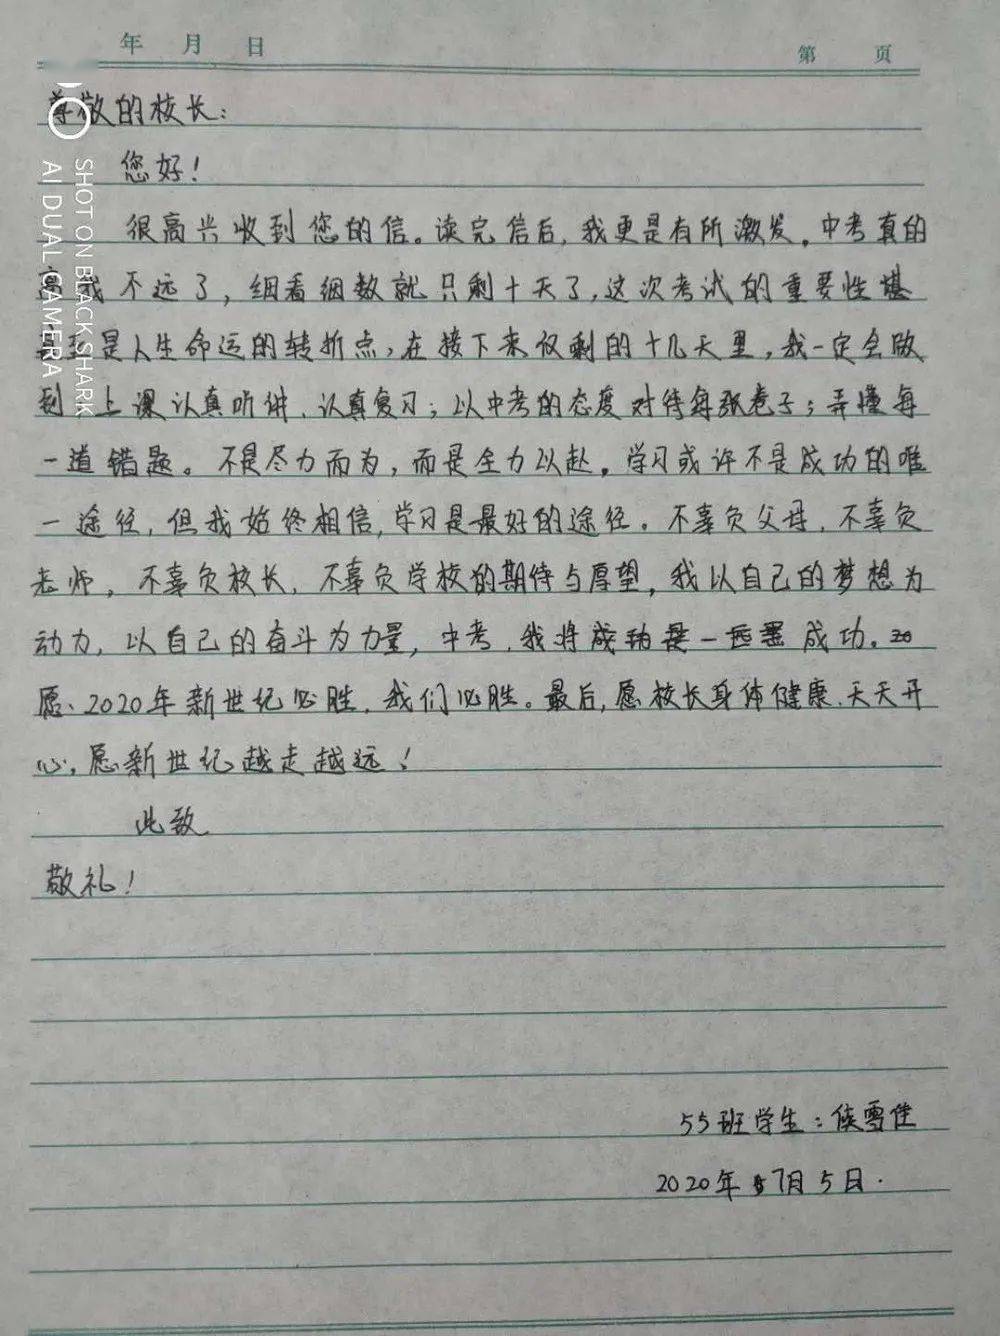 年 月 日
第 页
尊敬的校长：
您好！
很高兴收到您的信。读完信后，我更是有所激发。中考真的
离我不远了，细看细数就只剩十天了，这次考试的重要性堪
是人生命运的转折点，在接下来仅剩的十几天里，我一定会做
到 上课认真听讲，认真复习；以中考的态度对待每张卷子；弄懂每
一道错题。不是尽力而为，而是全力以赴。学习或许不是成功的唯
一途径，但我始终相信，学习是最好的途径。不辜负父母，不辜负
老师，不辜负校长，不辜负学校的期待与厚望，我以自己的梦想为
动力，以自己的奋斗为力量，中考，我将成功是一 成功。20
愿、2020年新世纪必胜，我们必胜。最后，愿校长身体健康、天天开
心，愿新世纪越走越远！
此致
敬礼！
55班学生：侯雪佳
2020年7月5日.
SHOT ON BLACK SHARK
AI DUAL CAMERA